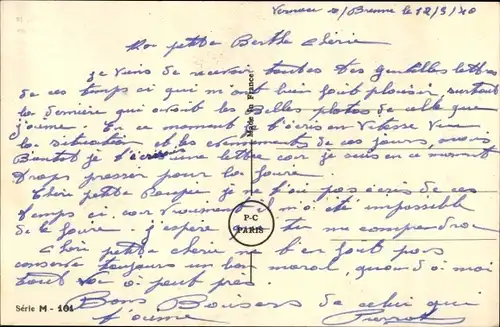 s/Brenne le 12/3/40
Ma petite Berthe Chérie
je viens de recevoir toutes tes gentilles lettres
de ces temps ci qui m'ont bien fait plaisir, surtout
la dernière qui avait les Belles photos de celle que
j'aime. En ce moment je t'écris en Vitesse Vu
la situation et les évènements de ces jours, mais
Bientot je t'écrirai une lettre car je suis en ce moment
trops presser pour le faire
Chère petite je ne t'ai pas écris de ces
temps ci car vraiment il m'a été impossible
de le faire. j'espère que tu me comprendras
Chère petite chérie ne t'en fait pas
conserve toujours un bon moral, quand à moi
tout va à peut près.
Bons Baisers de celui qui
t'aime Pierrot
Made in France
P-C
PARIS
Série M - 101